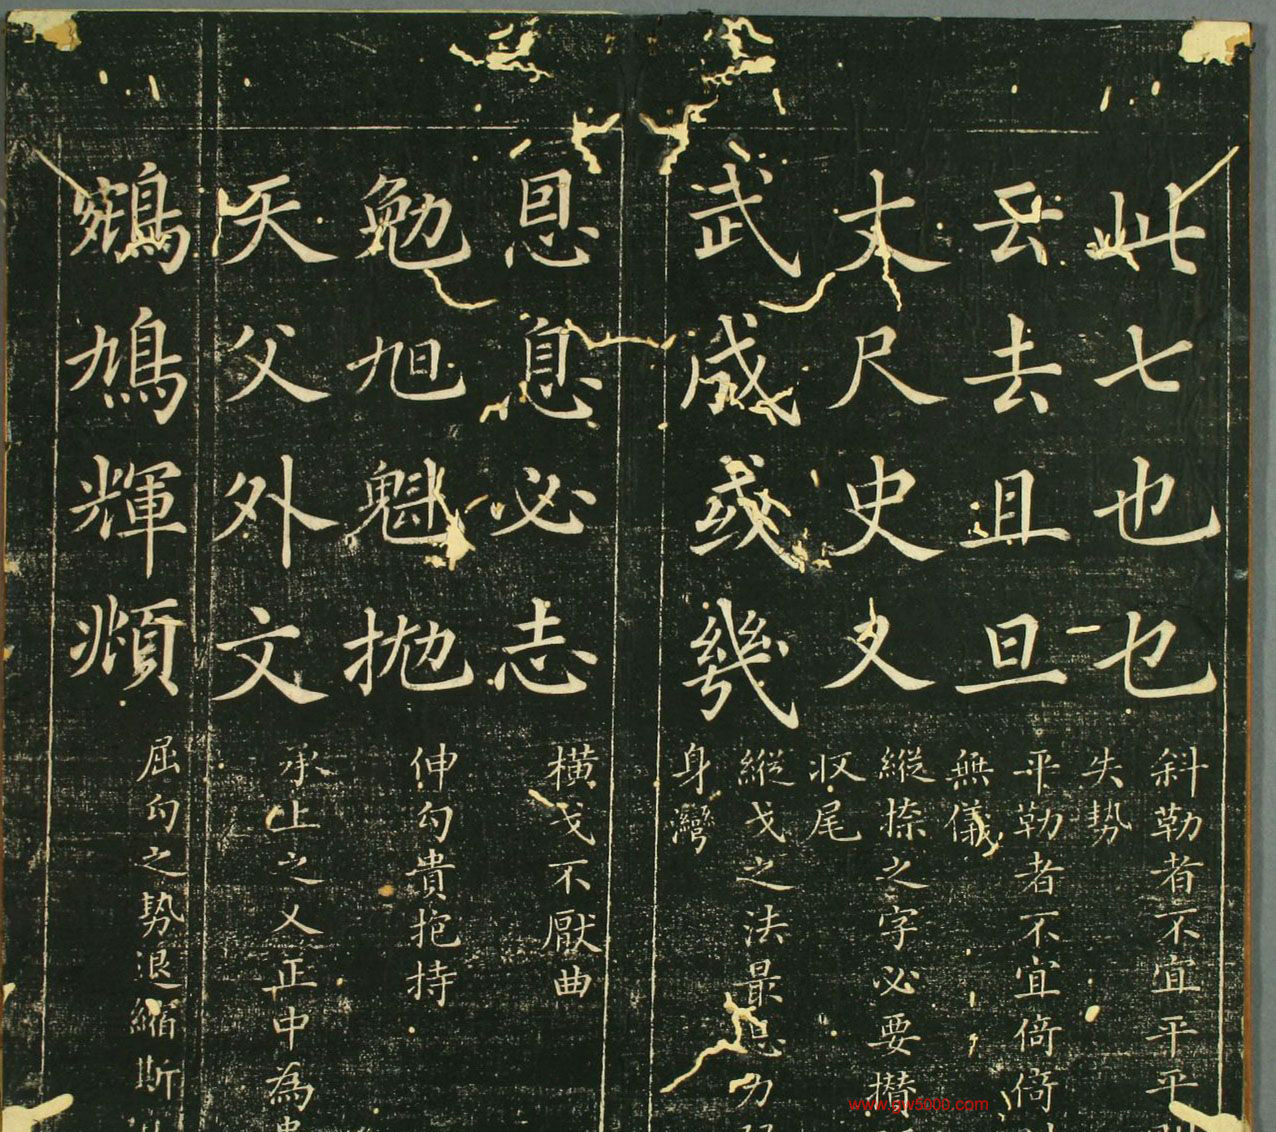 此七也乜
斜勒者不宜平平
失勢
云去且旦
平勒者不宜倚倚
無儀
丈尺史
縱捺之字必要
收尾
武成或幾
縱戈之法最忌力
身彎
恩息必志
橫戈不厭曲
勉旭魁拋
伸勾貴抱持
天父外文
承上之乂正中為
鵷鳩輝頫
屈勾之勢退縮斯
www.gw5000.com